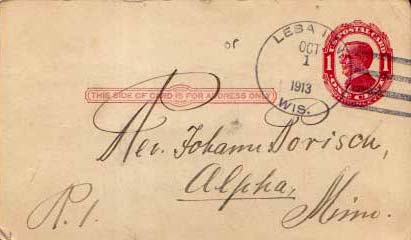 or
U.S. POSTAL CARD
1 1
ONE CENT
OCT
1
1913
WIS.
THIS SIDE OF CARD IS FOR ADDRESS ONLY
Rev. Johann Dorisch,
Alpha,
R. 1. Minn.